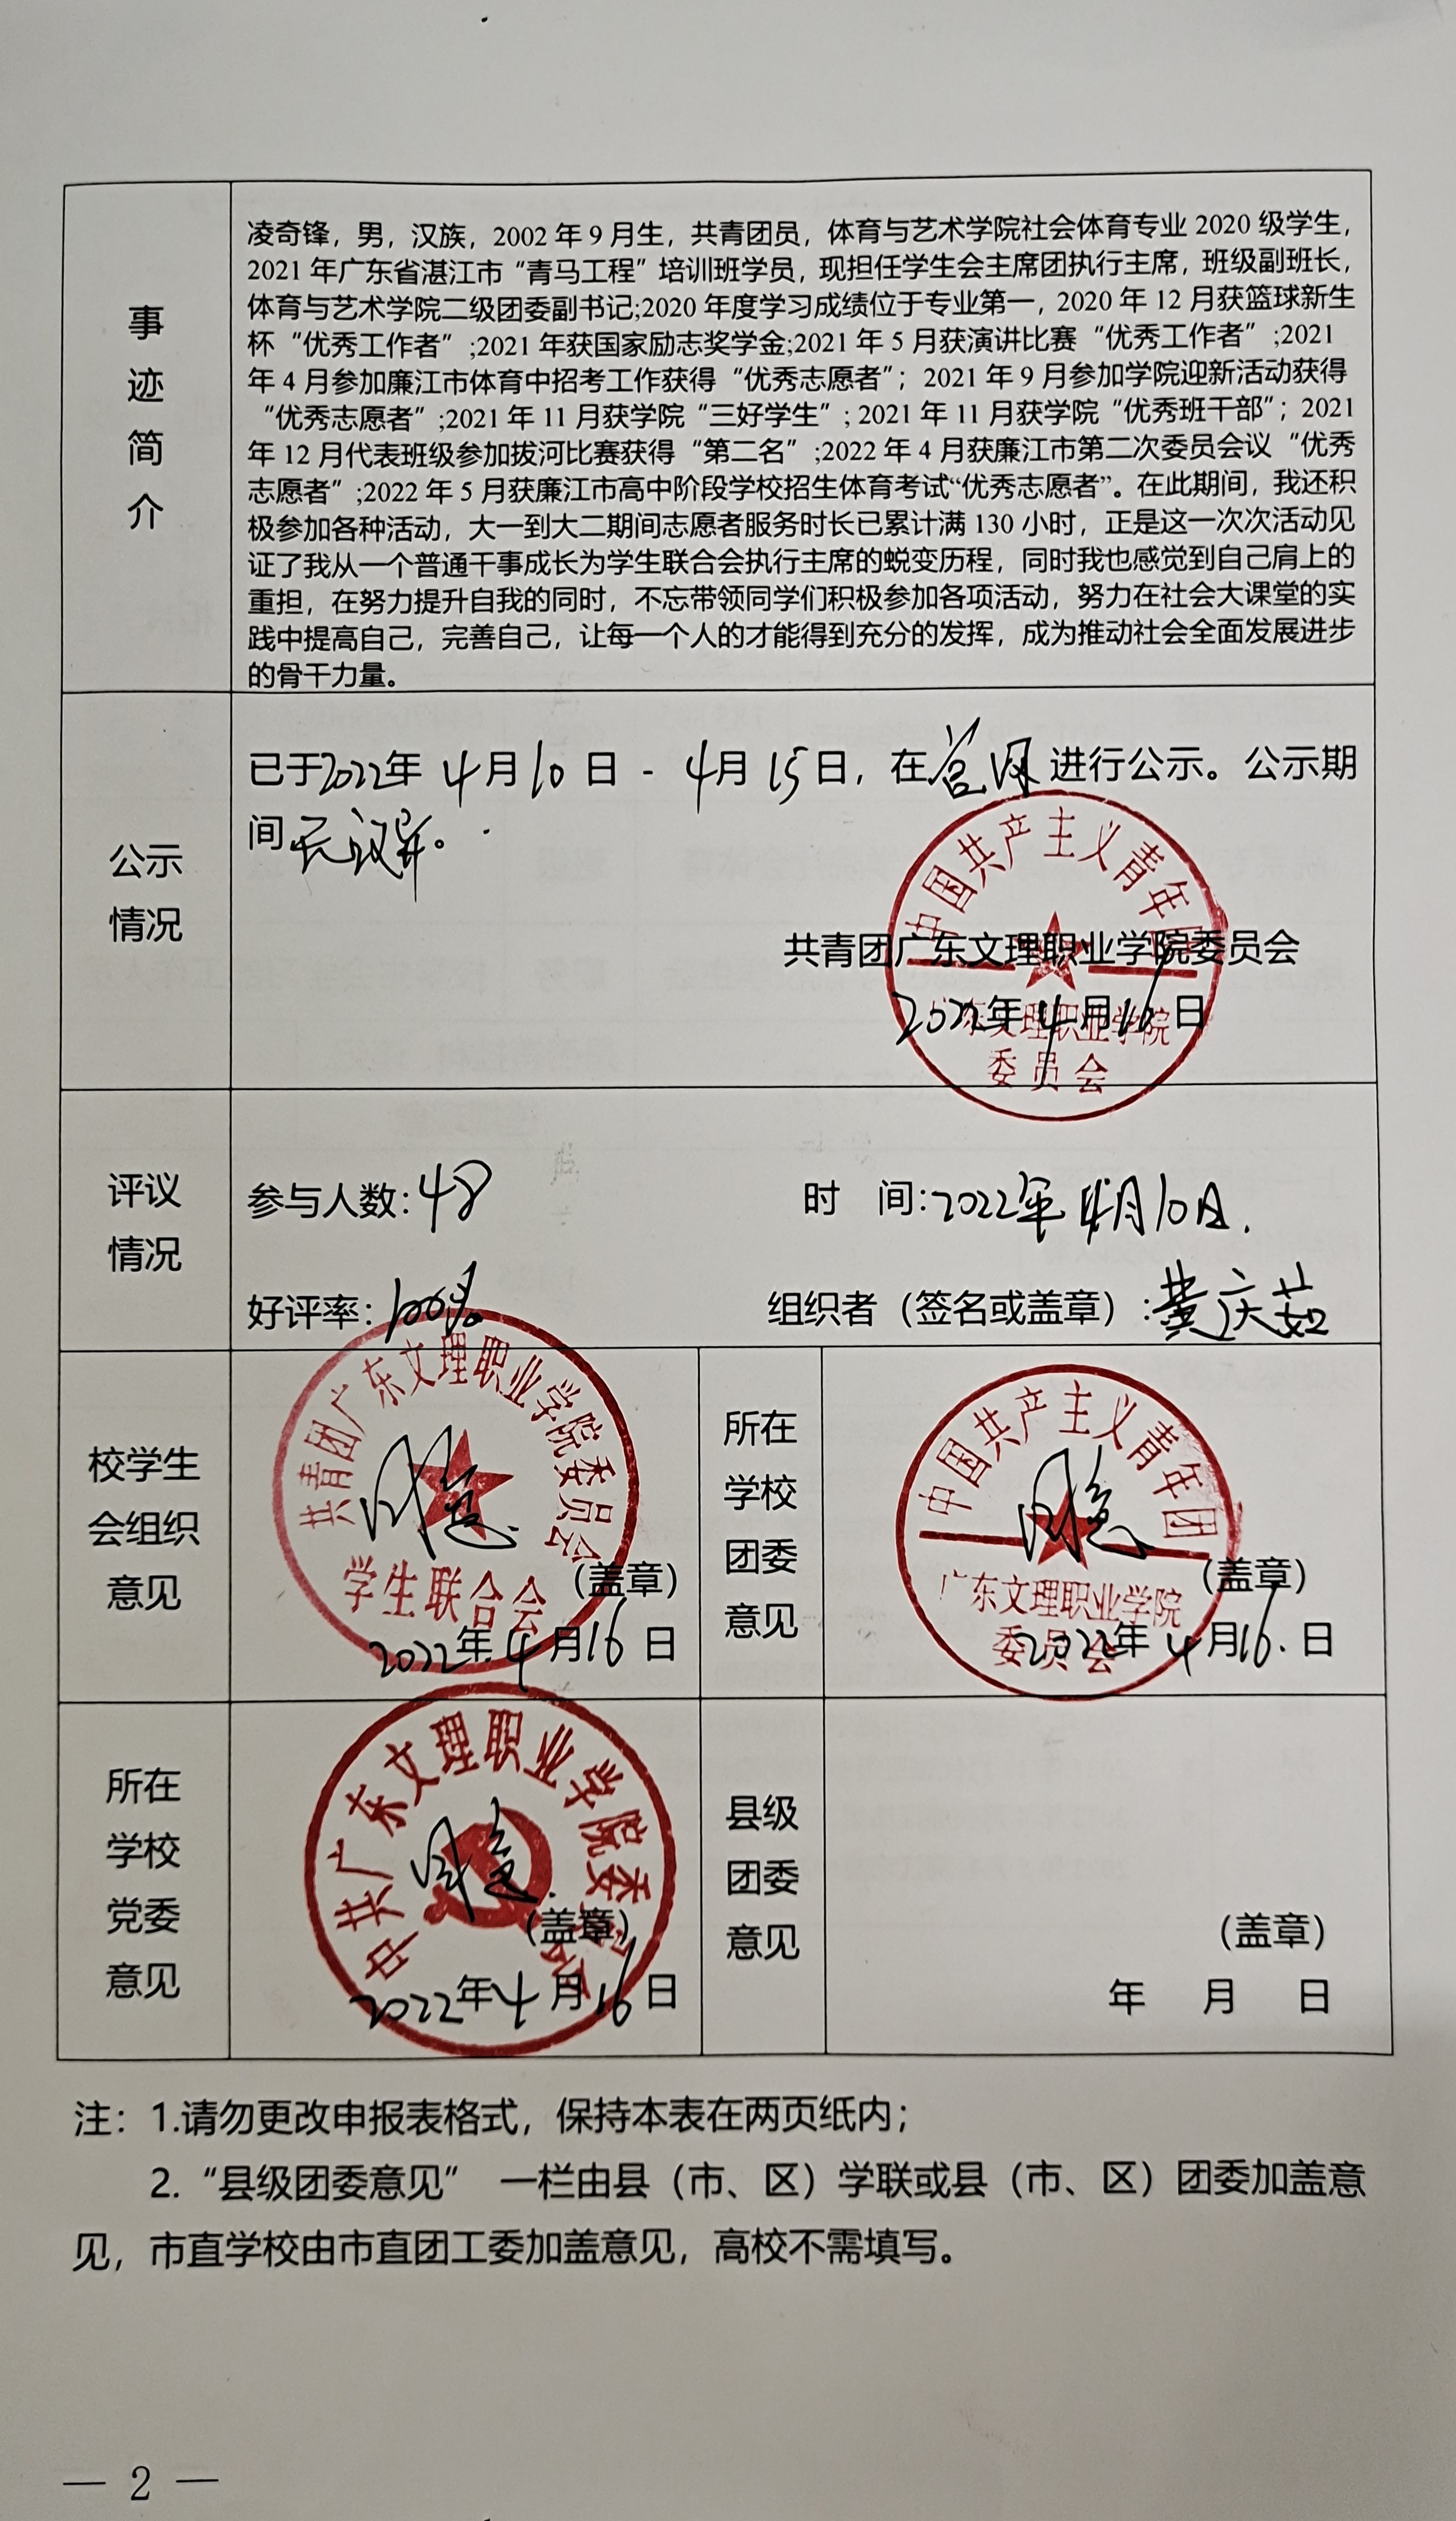 事迹简介
凌奇锋，男，汉族，2002年9月生，共青团员，体育与艺术学院社会体育专业2020级学生，
2021年广东省湛江市“青马工程”培训班学员，现担任学生会主席团执行主席，班级副班长，
体育与艺术学院二级团委副书记;2020年度学习成绩位于专业第一，2020年12月获篮球新生
杯“优秀工作者”;2021年获国家励志奖学金;2021年5月获演讲比赛“优秀工作者”;2021
年4月参加廉江市体育中招考工作获得“优秀志愿者”；2021年9月参加学院迎新活动获得
“优秀志愿者”;2021年11月获学院“三好学生”; 2021年11月获学院“优秀班干部”；2021
年12月代表班级参加拔河比赛获得“第二名”;2022年4月获廉江市第二次委员会议“优秀
志愿者”;2022年5月获廉江市高中阶段学校招生体育考试“优秀志愿者”。在此期间，我还积
极参加各种活动，大一到大二期间志愿者服务时长已累计满130小时，正是这一次次活动见
证了我从一个普通干事成长为学生联合会执行主席的蜕变历程，同时我也感觉到自己肩上的
重担，在努力提升自我的同时，不忘带领同学们积极参加各项活动，努力在社会大课堂的实
践中提高自己，完善自己，让每一个人的才能得到充分的发挥，成为推动社会全面发展进步
的骨干力量。
公示
情况
已于2022年4月10日 - 4月15日，在官网进行公示。公示期
间无议异。
共青团广东文理职业学院委员会
2022年4月16日
中国共产主义青年团
广东文理职业学院
委员会
评议
情况
参与人数：48
时 间：2022年4月10日.
好评率：100%
组织者（签名或盖章）:黄庆茹
校学生
会组织
意见
共青团广东文理职业学院委员会
同意
学生联合会
（盖章）
2022年4月16日
所在
学校
团委
意见
中国共产主义青年团
同意
广东文理职业学院
委员会
（盖章）
2022年4月16.日
所在
学校
党委
意见
中共广东文理职业学院委员会
同意.
（盖章）
2022年4月16日
县级
团委
意见
（盖章）
年 月 日
注：1.请勿更改申报表格式，保持本表在两页纸内；
2.“县级团委意见” 一栏由县（市、区）学联或县（市、区）团委加盖意
见，市直学校由市直团工委加盖意见，高校不需填写。
— 2 —